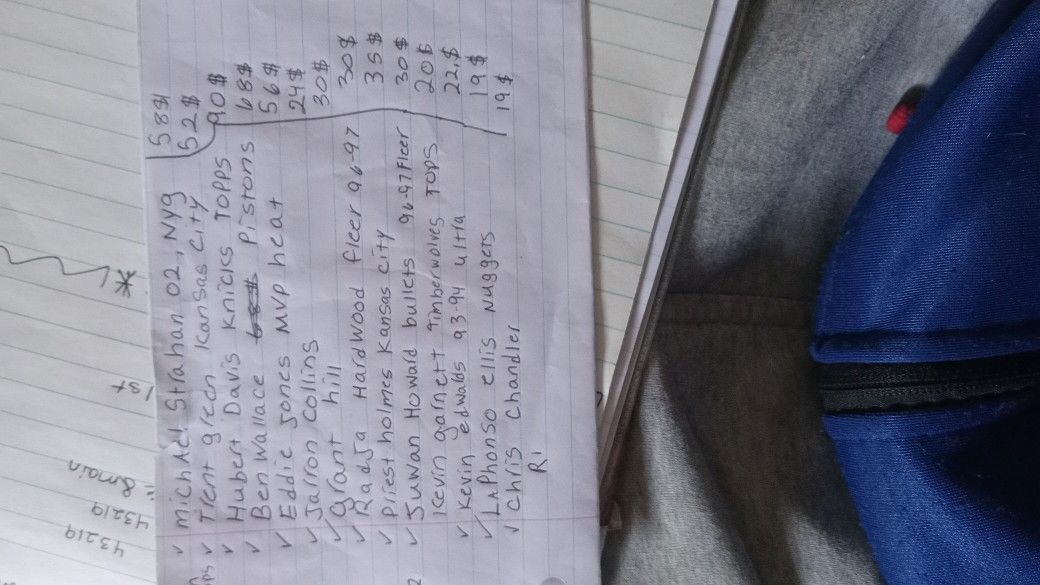 ✓ michAel Strahan 02, Nyg 58$
✓ Trent green Kansas City 52$
✓ Hubert Davis Knicks TOPPS 90$
✓ Ben Wallace Pistons 68$
✓ Eddie Jones MVP heat 56$
Jarron Collins 24$
✓ grant hill 30$
✓ Radja HardWood fleer 96-97 30$
✓ Priest holmes Kansas city 35$
✓ Juwan Howard bullets 96-97 Fleer 30$
Kevin garnett Timberwolves TOPS 20$
✓ Kevin edwalds 93-94 ultra 22,$
✓ LAPhonso ellis Nuggets 19$
✓ Chris Chandler 19$
1st
43219
43219